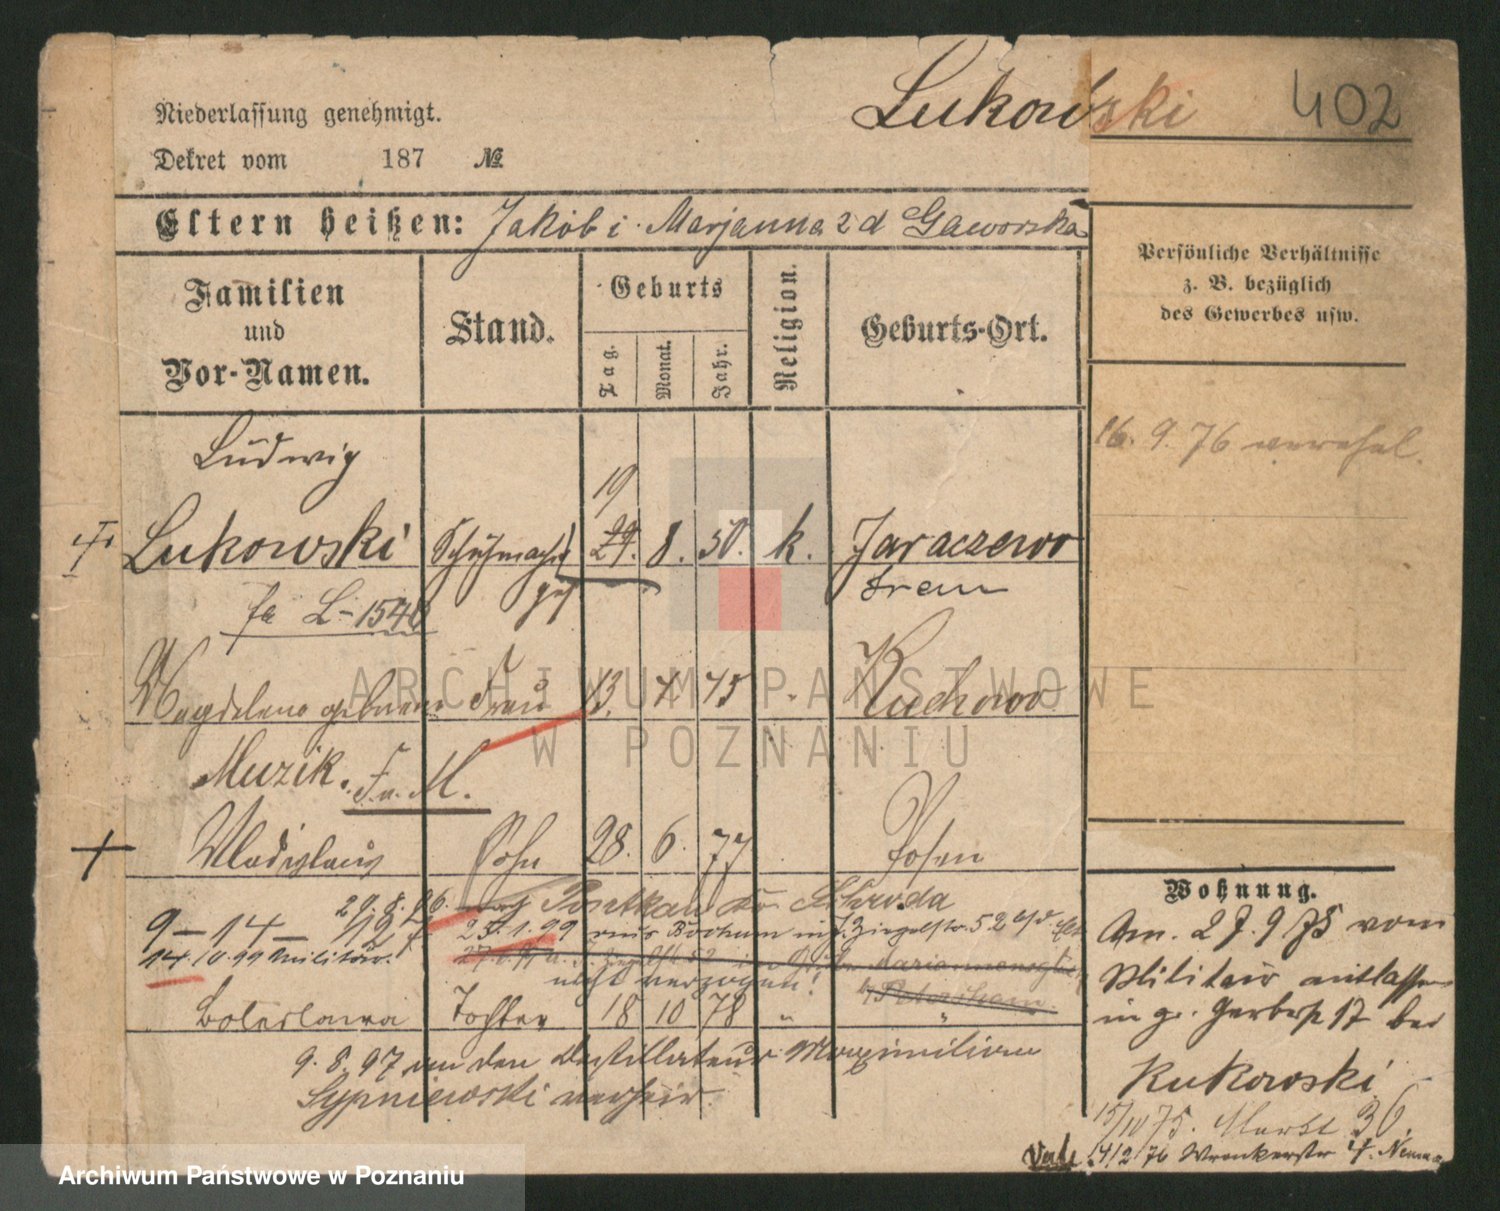 Lukowski 402
Niederlassung genehmigt.
Dekret vom 187 №
Eltern heißen: Jakób i Marjanna z d Gaworska
Persönliche Verhältnisse
z. B. bezüglich
des Gewerbes usw.
Familien
und
Vor-Namen.
Stand.
Geburts
Tag.
Monat.
Jahr.
Religion.
Geburts-Ort.
16. 9. 76
Ludwig
19
Lukowski Schuhmacher 29. 8. 50. k. Jaraczewo
ges Srem
L-1540
Magdalena geborene Frau 13. 45 Kuchowo
Muzik. F. M.
Wladislaus Sohn 28. 6. 77 Posen
29. 8. 96. Schroda
9-14-
25. 1. 99 aus Bochum Ziegelstr. 52
14. 10. 99 Militär.
nicht verzogen!
Boleslawa Tochter 18 10 78 " "
9. 8. 97 an den Destillateur Maximilian
Sypniewski verheir.
Wohnung.
Am. 27. 9 75 vom
Militair entlassen
in gr. Gerberst 17 bei
Kukowski
15/10 75. Markt 36.
14/2 76 Wronkerstr 4.
ARCHIWUM PAŃSTWOWE
W POZNANIU
Archiwum Państwowe w Poznaniu